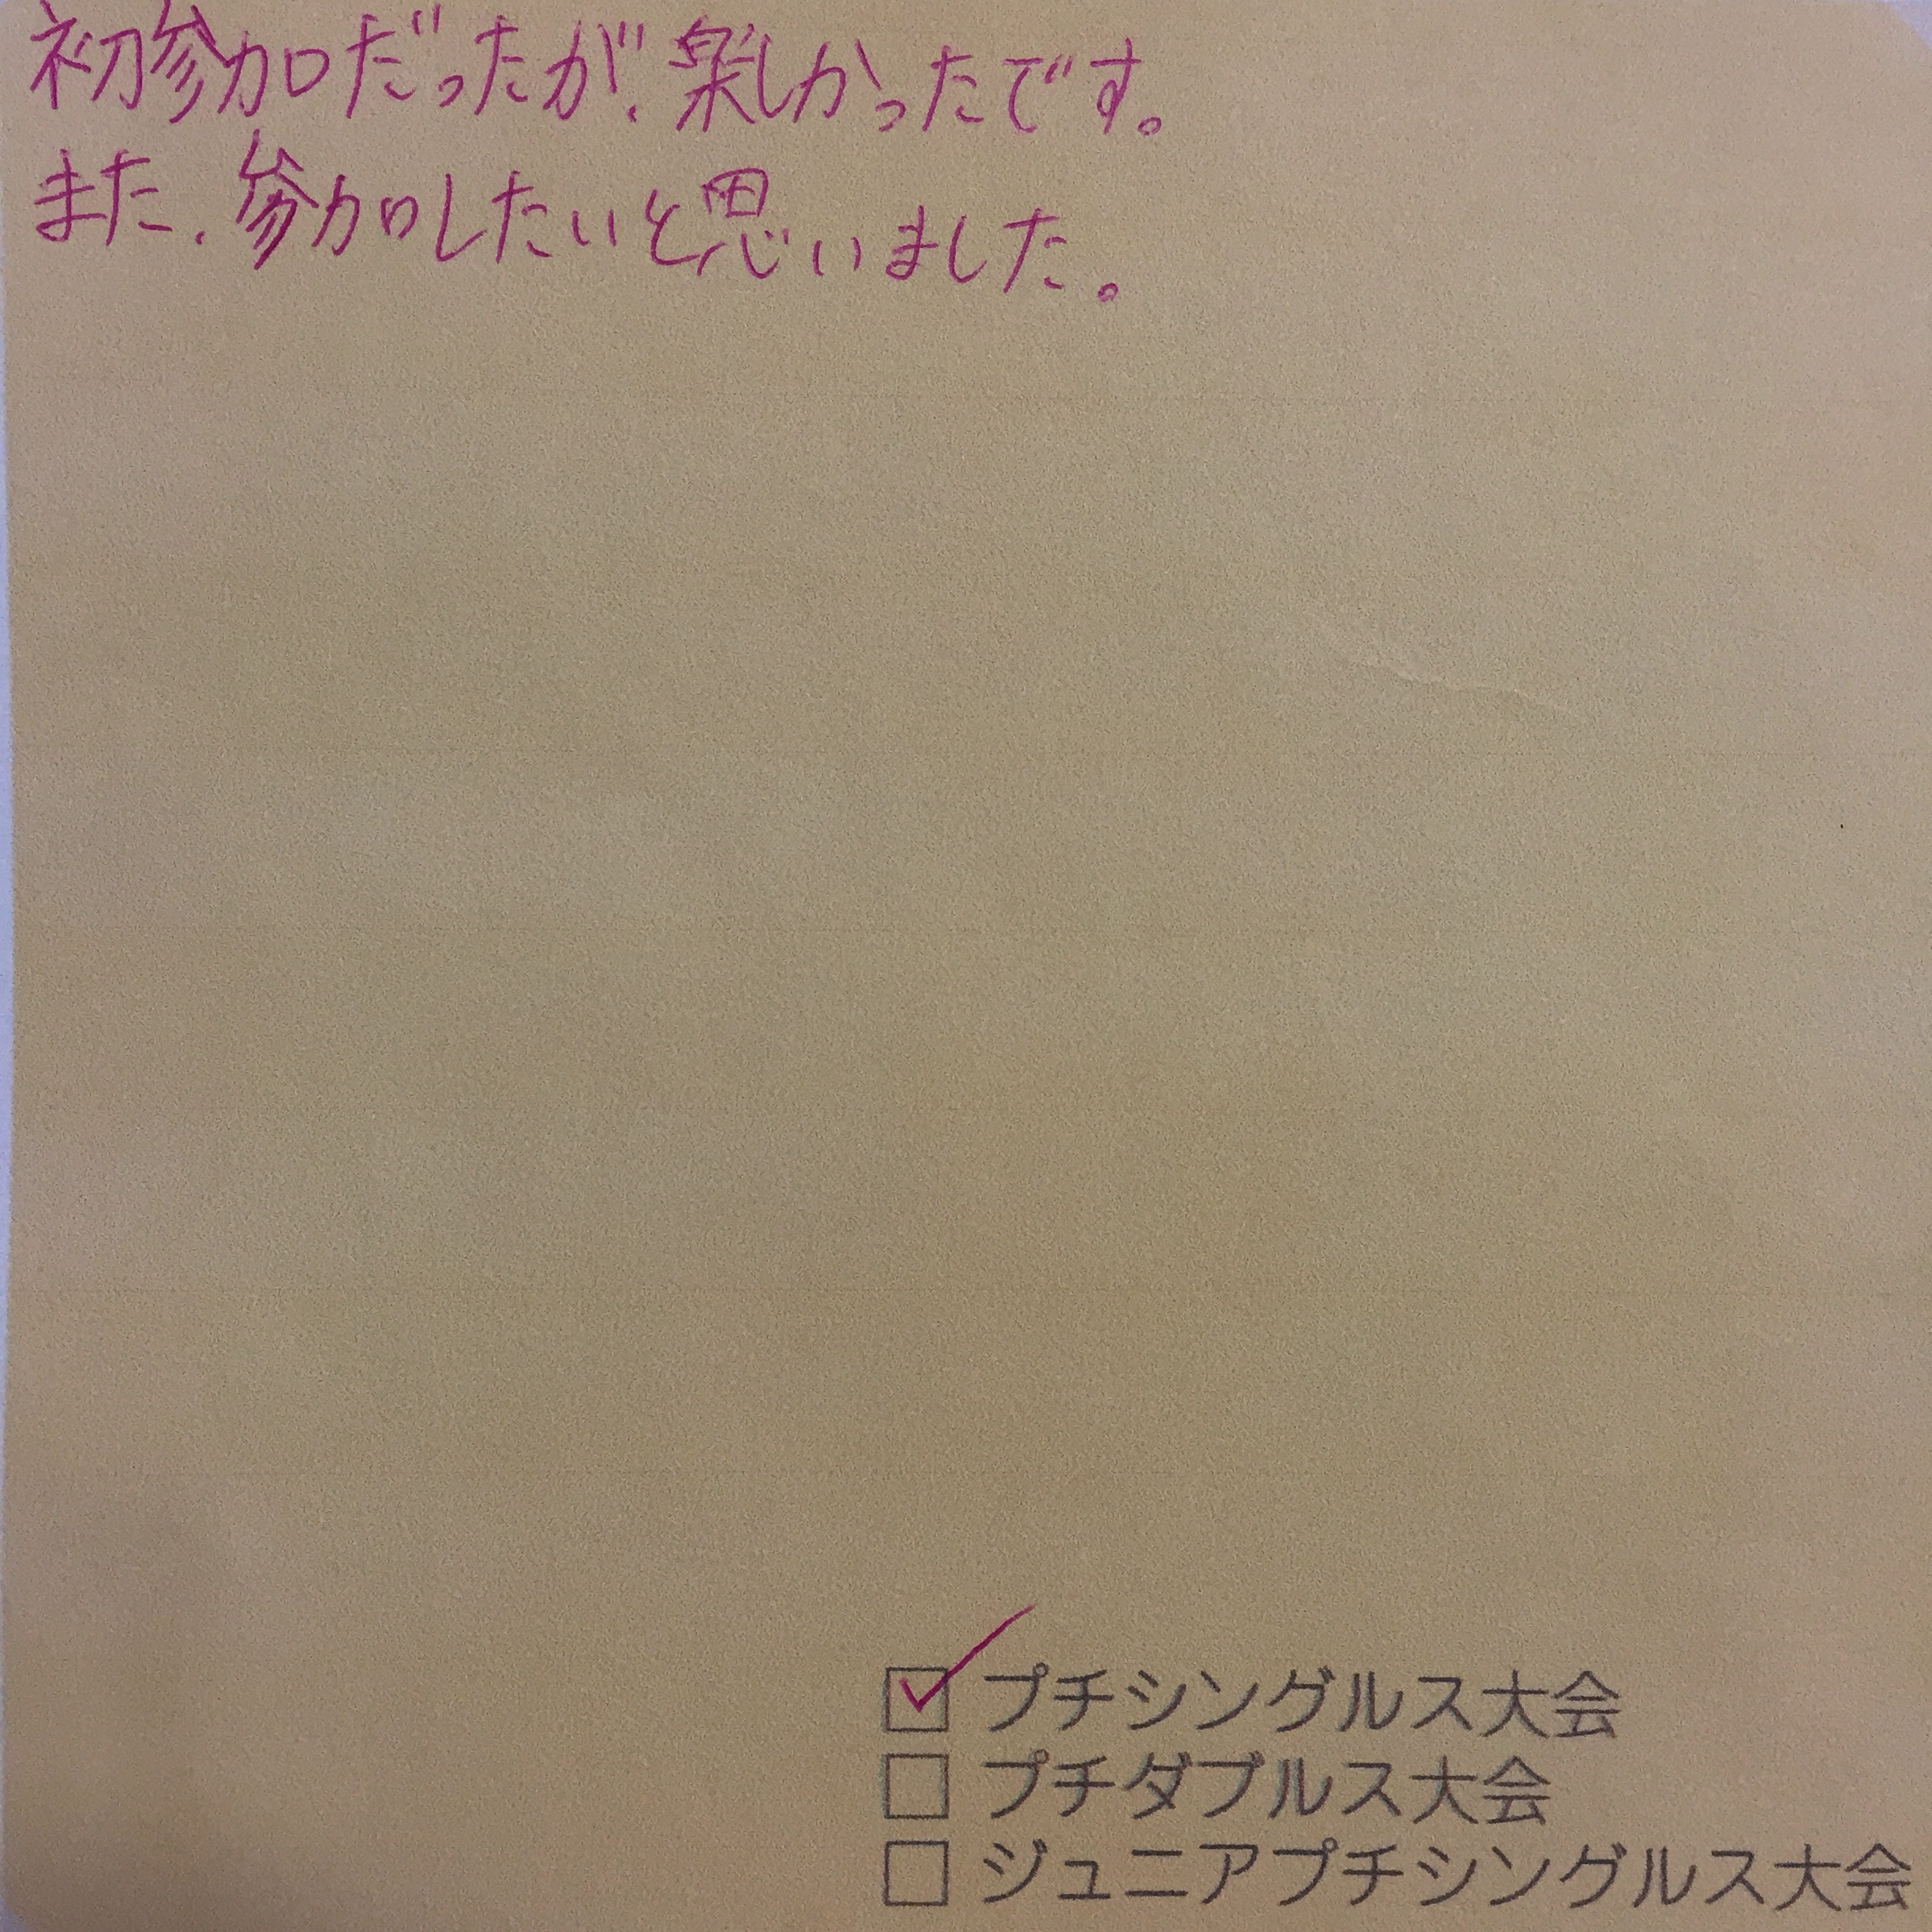 初参加だったが、楽しかったです。
また、参加したいと思いました。
☑ プチシングルス大会
☐ プチダブルス大会
☐ ジュニアプチシングルス大会